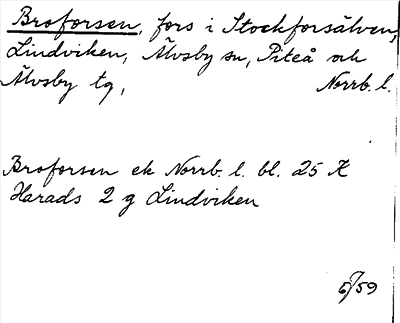 Broforsen, fors i Stockforsälven,
Lindviken, Älvsby sn, Piteå och
Älvsby tg, Norrb. l.
Broforsen ek Norrb. l. bl. 25 K
Harads 2 g Lindviken
59